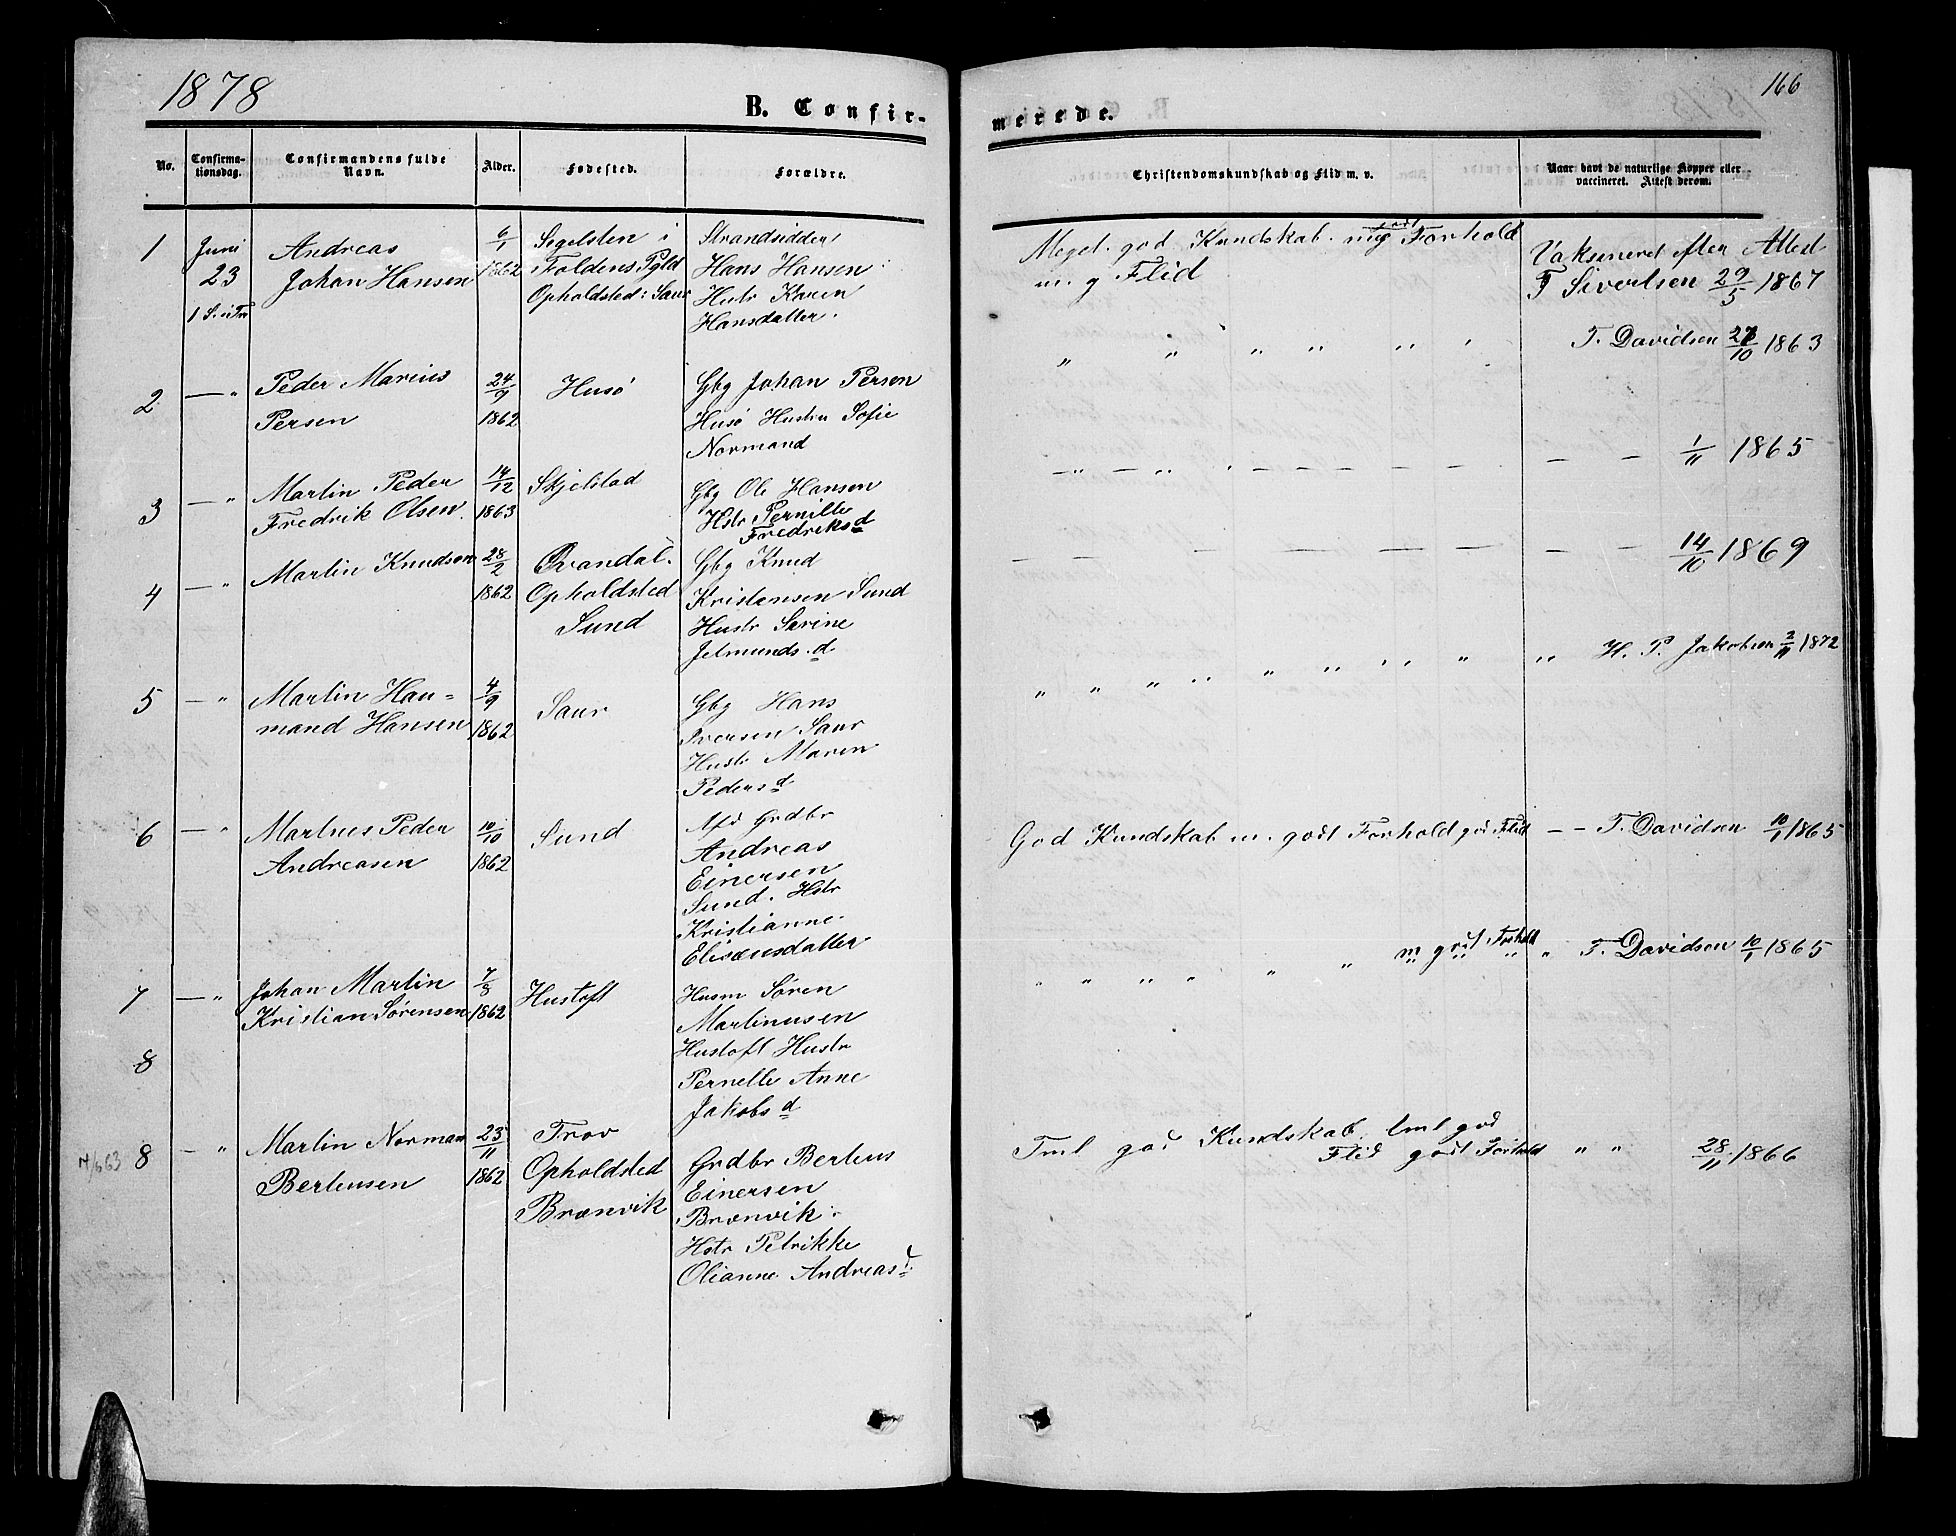 1878
B. Confir-
No.
Confirma-
tionsdag.
Confirmandens fulde
Navn.
Alder.
Fødested.
Forældre.
1
Juni
23
1 S. e Tr
Andreas
Johan Hansen
6/1
1862
Segelsten i
Foldens Pgld
Opholdsted: Saur
Strandsidder
Hans Hansen
Hustr Karen
Hansdatter.
2
— "
Peder Marius
Persen
24/9
1862
Husø
Gbg Johan Persen
Husø Hustru Sofie
Normand
3
— "
Martin Peder
Fredrik Olsen.
14/12
1863
Skjelstad
Gbg Ole Hansen
Hstr Pernille
Fredriksd
4
— "
Martin Knudsen
28/2
1862
Opholdsted
Sund
Gbg Knud
Kristensen Sund
Hustr Serine
Jetmunds.d
5
— "
Martin Hau-
mand Hansen
4/9
1862
Saur
Gbg Hans
Iversen Saur
Hustr Maren
Pedersd
6
— "
Martnus Peder
Andreasen
10/10
1862
Sund
Afd Grdbr
Andreas
Einersen
Sund. Hstr
Kristianne
Elisæusdatter
7
— "
Johan Martin
Kristian Sørensen
7/3
1862
Hustoft
Husm Søren
Martinusen
Hustoft Hustr
Pernelle Anne
Jakobsd
8
8
— "
Martin Norman
Berteusen
23/11
1862
Trov
Opholdsted
Brænvik
Grdbr Berteus
Einersen
Brænvik.
Hstr Petrikke
Olianne Andreasd
166
merede.
Christendomskundskab og Flid m. v.
Naar havt de naturlige Kopper eller
vaccineret. Attest derom.
Meget god Kundskab. mg godt Forhold
m. g Flid
Vaksineret efter Attest
F Sivertsen 29/5 1867
" " " " " "
T. Davidsen 27/10 1863
— " — " — — — — — — — 1/11 1865
— — — — — — — — 14/10 1869
" " " " " " " " " H. P. Jakobsen 2/11 1872
God Kundskab m. godt Forhold god Flid — — T. Davidsen 10/1 1865
" " " " " " m godt Forhold " T. Davidsen 10/1 1865
Tml god Kundskab. tml god
Flid godt Forhold " " 28/11 1866